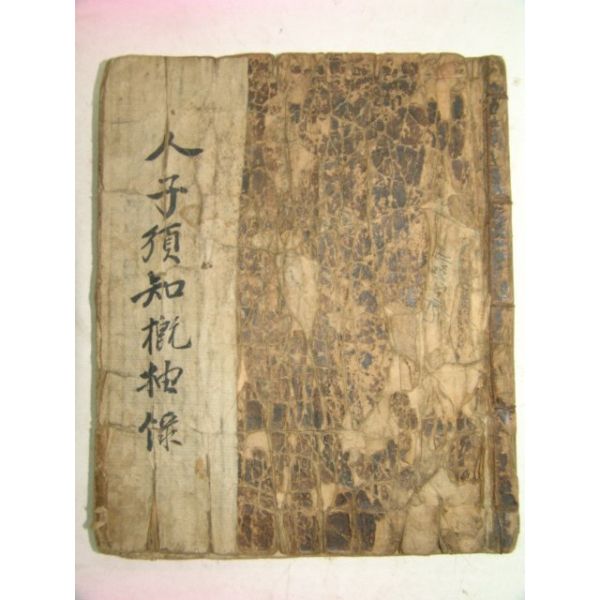 人子須知槪抽錄